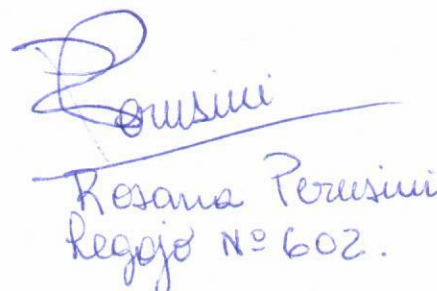 Perusini
Rosana Perusini
Legajo Nº 602.